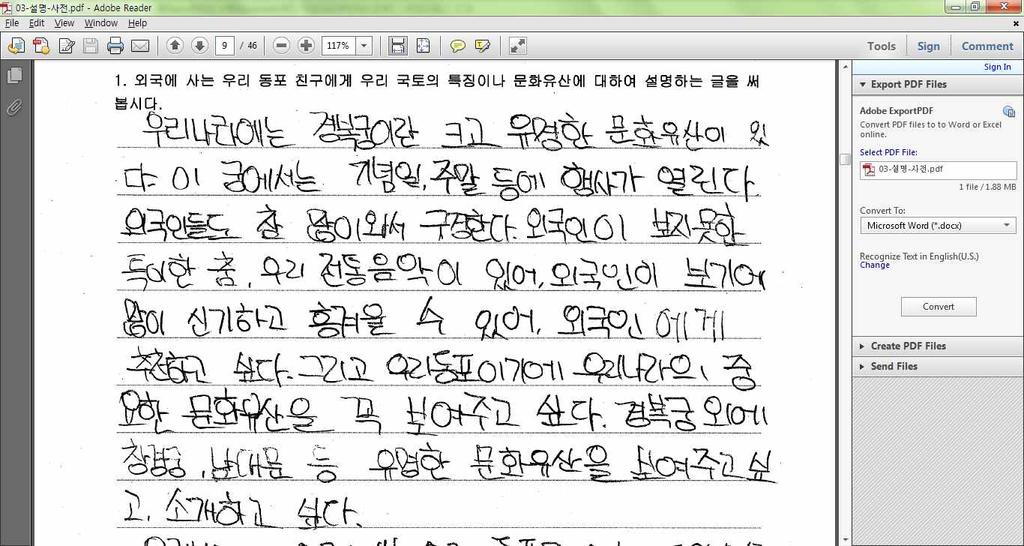 03-설명-사전.pdf - Adobe Reader
File Edit View Window Help
9 / 46 117% Tools Sign Comment
Sign In
Export PDF Files
Adobe ExportPDF
Convert PDF files to to Word or Excel online.
Select PDF File:
03-설명-사전.pdf
1 file / 1.88 MB
Convert To:
Microsoft Word (*.docx)
Recognize Text in English(U.S.)
Change
Convert
Create PDF Files
Send Files
1. 외국에 사는 우리 동포 친구에게 우리 국토의 특징이나 문화유산에 대하여 설명하는 글을 써
봅시다.
우리나라에는 경복궁이란 크고 유명한 문화유산이 있
다. 이 궁에서는 기념일, 주말 등에 행사가 열린다
외국인들도 참 많이와서 구경한다. 외국인이 보지못한
특이한 춤, 우리 전통음악이 있어, 외국인이 보기에
많이 신기하고 흥겨울 수 있어, 외국인에게
추천하고 싶다. 그리고 우리동포이기에 우리나라의 중
요한 문화유산을 꼭 보여주고 싶다. 경복궁외에
창경궁, 남대문 등 유명한 문화유산을 보여주고싶
고, 소개하고 싶다.